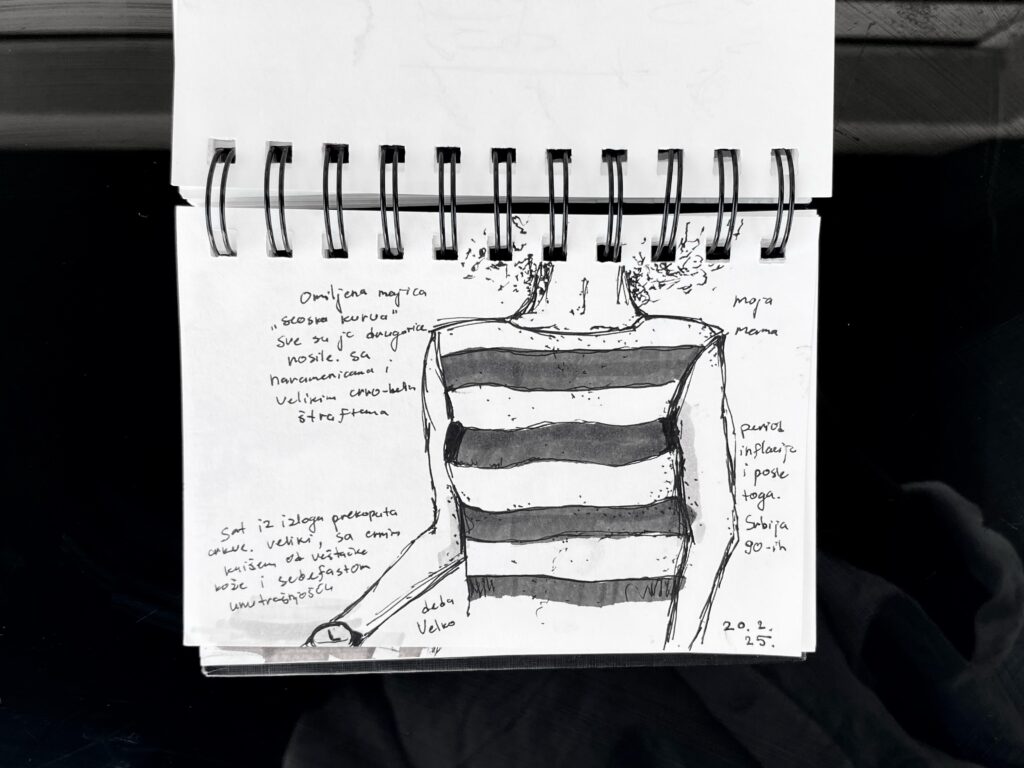 Omiljena majica
„seoska kurva"
sve su je drugarice
nosile. sa
naramenicama i
velikim crno-belim
štraftama
moja
mama
period
inflacije
i posle
toga.
Srbija
90-ih
Sat iz izloga prekoputa
crkve. veliki, sa crnim
kaišem od veštačke
kože i sedefastom
unutrašnjošću
deda
Velko
20.2.
25.